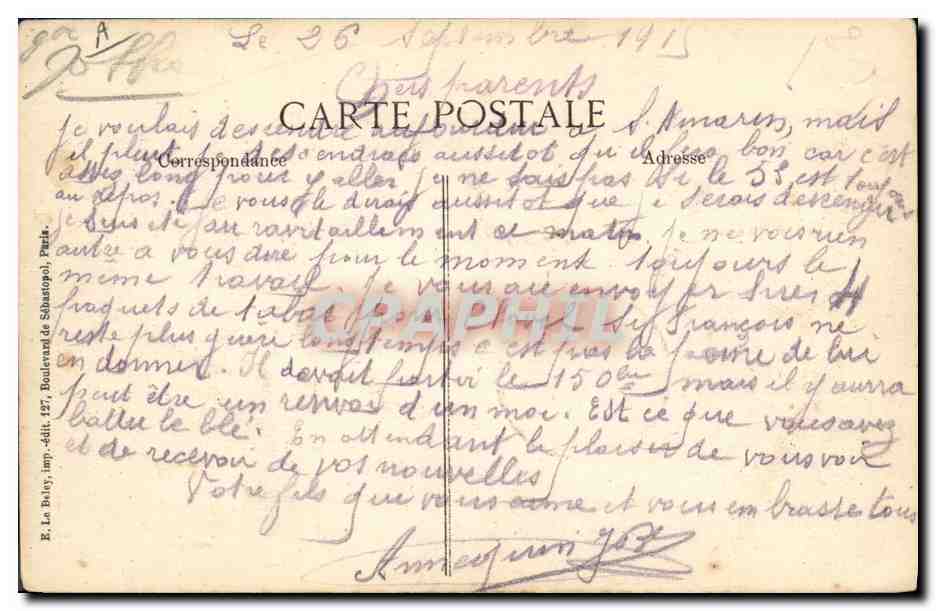 Le 26 Septembre 1915
Chers parents
CARTE POSTALE
je voulais descendre aujourdhui a S. Amarin, mais
il pleut je descendrais aussitot qu'il fera bon car c'est
Correspondance
Adresse
assez long pour y aller. je ne sais pas si le 5e est toujours
au repos. Je vous le dirais aussitot que je serais descendu
je suis été au ravitaillement ce matin je ne vois rien
autre a vous dire pour le moment toujours le
meme travail. je vous ai envoyer hier 4
paquets de tabac si François ne
reste plus guère longtemps c'est pas la peine de lui
en donner. Il devait partir le 15 8bre mais il y aurra
peut être un renvoi d'un moi. Est ce que vous avez
battu le blé. En attendant le plaisir de vous voir
et de recevoir de vos nouvelles
Votre fils que vous aime et vous embrasse tous
Annequin JBte
E. Le Deley, imp.-édit. 127, Boulevard de Sébastopol, Paris.
CPAPHIL